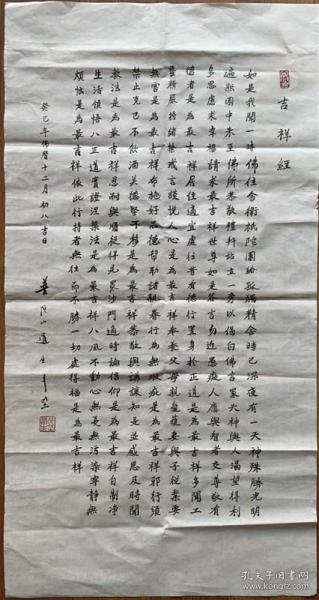 吉祥經
如是我聞一時佛住舍衛祇陀園給孤獨精舍時已深夜有一天神殊勝光明
遍照園中來至佛所恭敬禮拜站立一旁以偈白佛言眾天神與人渴望得利
多思慮求幸福請示最吉祥世尊如是答言勿近愚癡人應與智者交尊敬有
德者是為最吉祥居住適宜處往昔有德行置身於正道是為最吉祥多聞工
藝精嚴持諸禁戒言談悅人心是為最吉祥奉養父母親愛護妻與子從業要
無害是為最吉祥布施好品德幫助諸親眷行為無瑕疵是為最吉祥邪行須
禁止克己不飲酒美德堅不移是為最吉祥恭敬與謙讓知足並感恩及時聞
教法是為最吉祥忍耐與順從得見眾沙門適時論信仰是為最吉祥自制淨
生活領悟八正道實證涅槃法是為最吉祥八風不動心無憂無污染寧靜無
煩惱是為最吉祥依此行持者無往而不勝一切處得福是為最吉祥
癸巳年佛曆十二月初八吉日
孔夫子旧书网